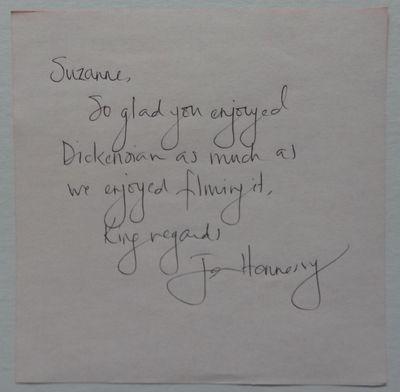 Suzanne,
So glad you enjoyed
Dickensian as much as
we enjoyed filming it,
Kind regards
Jo Hennessy